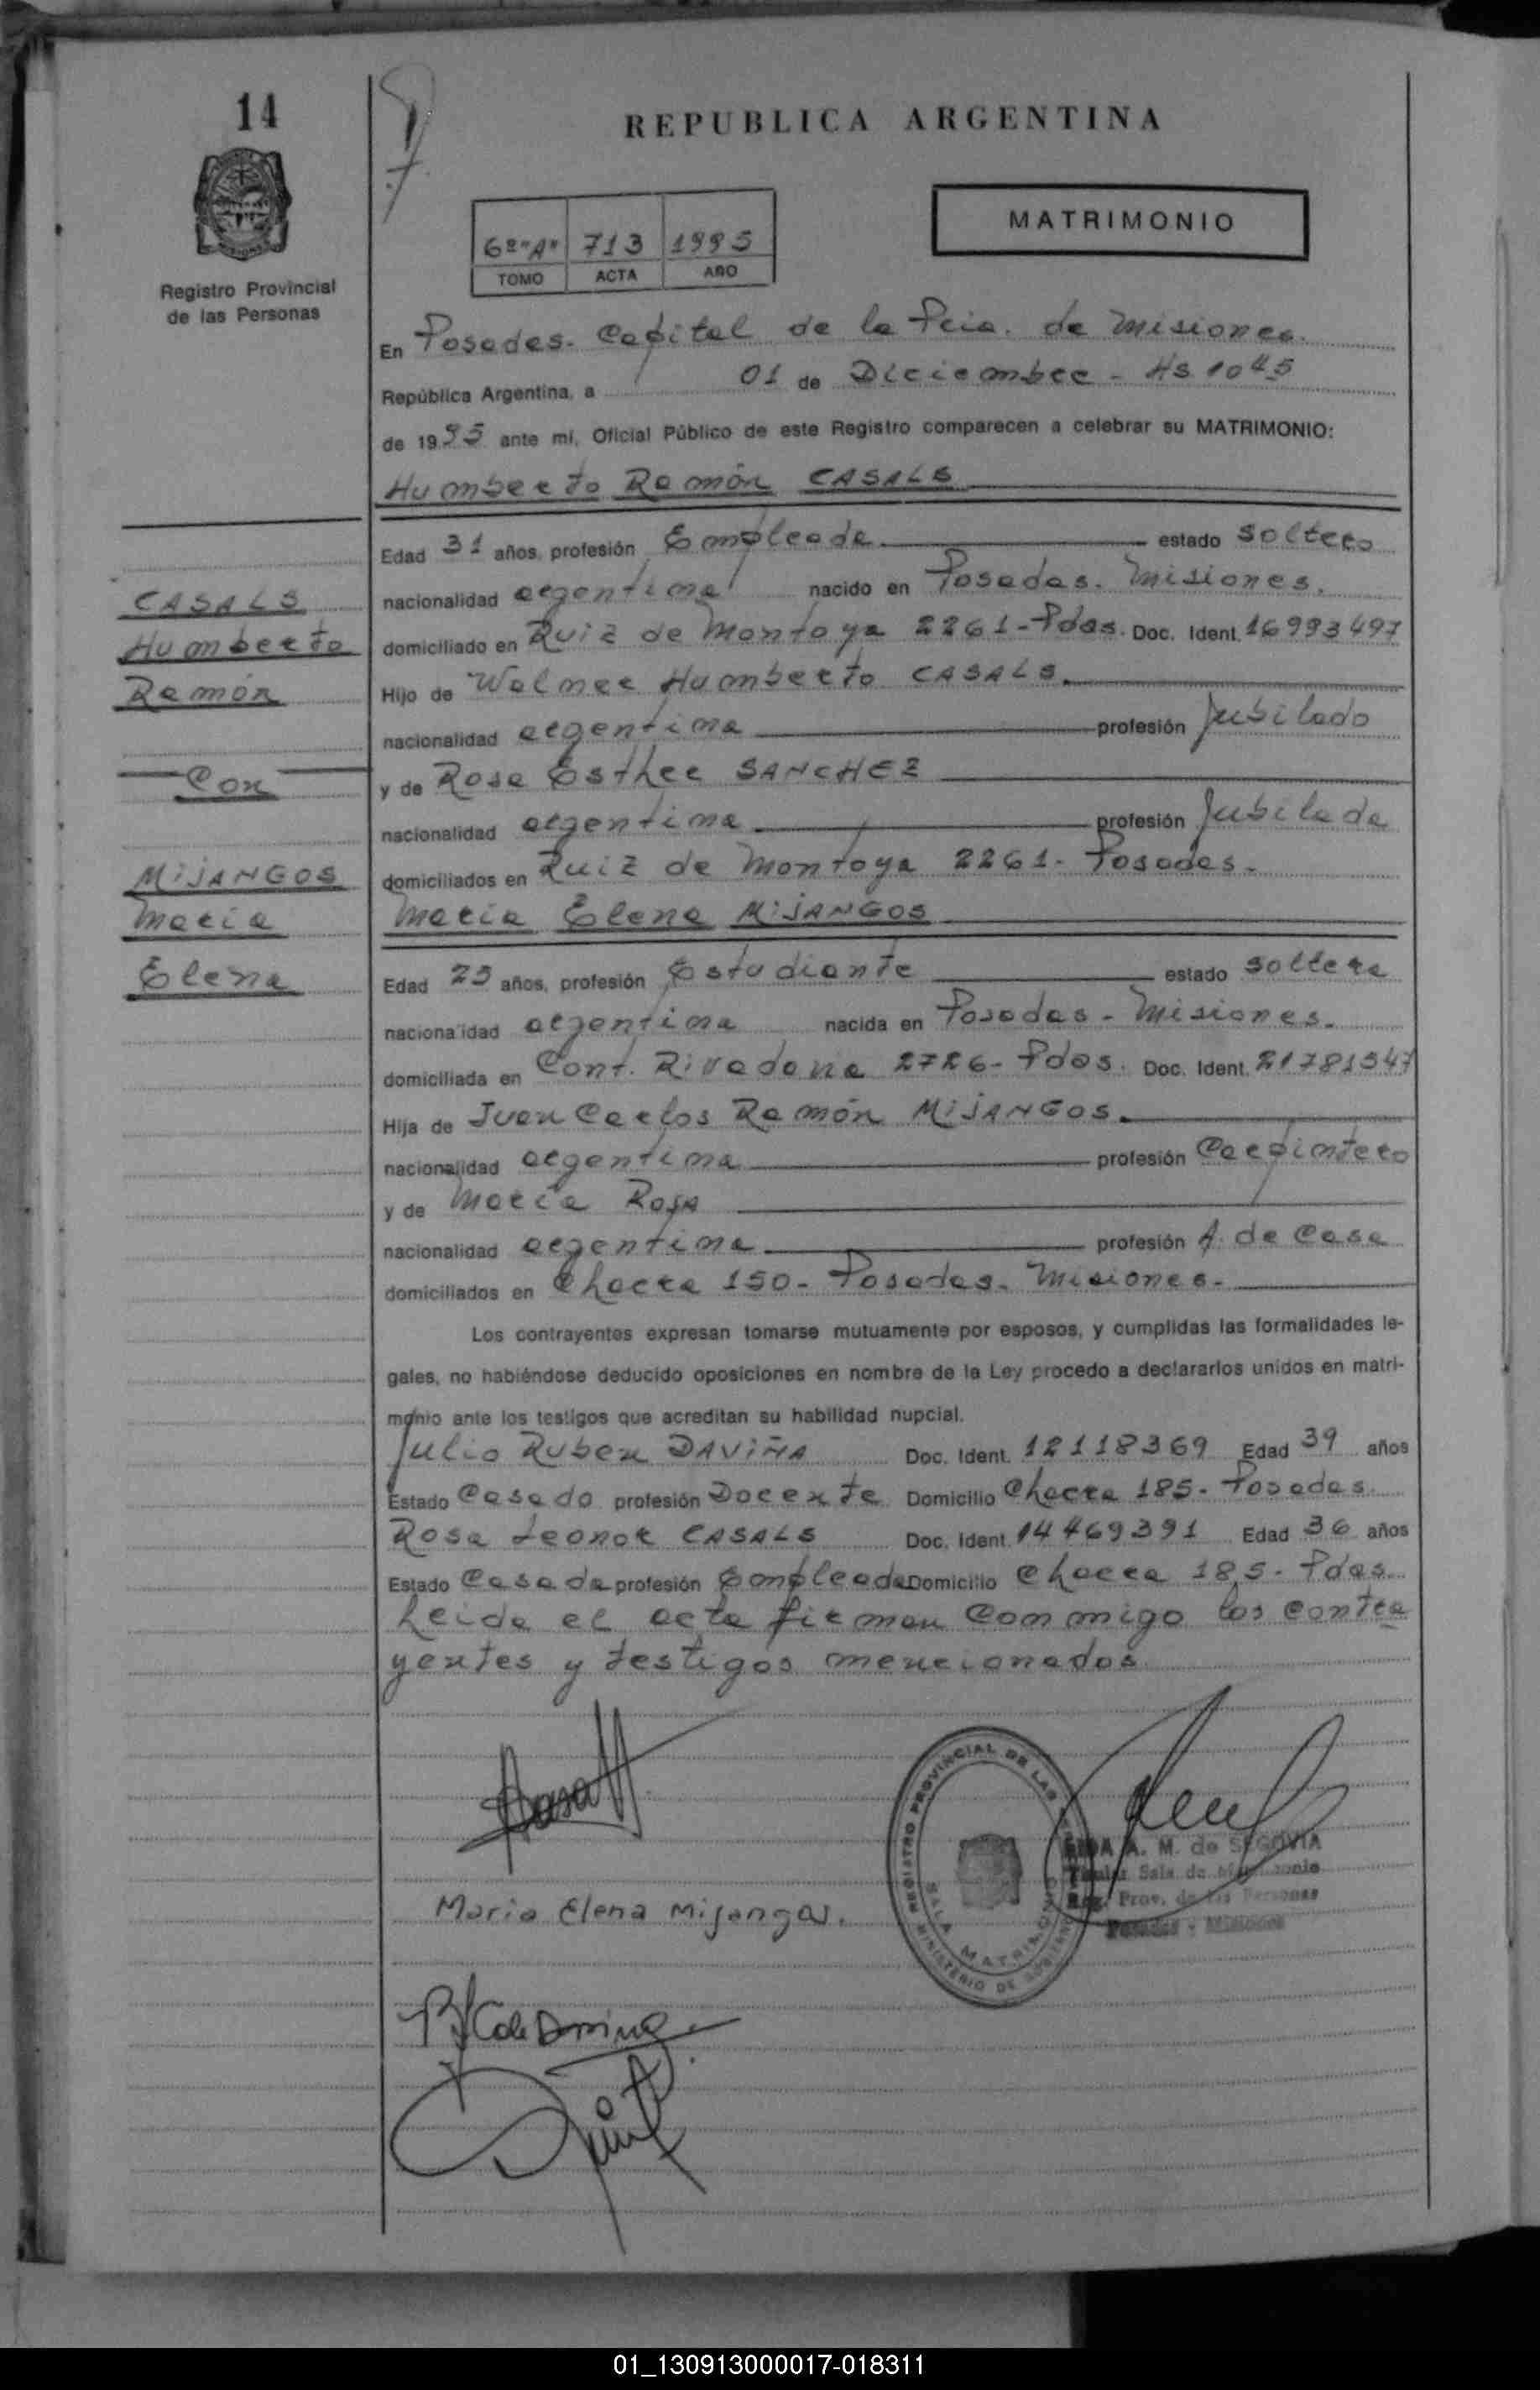 14
REPUBLICA ARGENTINA
MATRIMONIO
6º "A" 713 1995
TOMO ACTA AÑO
Registro Provincial
de las Personas
En Posadas. Capital de la Pcia. de Misiones.
República Argentina, a 01 de Diciembre - Hs 10 45
de 1995 ante mí, Oficial Público de este Registro comparecen a celebrar su MATRIMONIO:
Humberto Ramón CASALS
Edad 31 años, profesión Empleado estado soltero
CASALS
Humberto
Ramón
Con
MIJANGOS
María
Elena
nacionalidad argentina nacido en Posadas. Misiones.
domiciliado en Ruiz de Montoya 2261-Pdas. Doc. Ident. 16993497
Hijo de Welmer Humberto CASALS.
nacionalidad argentina profesión Jubilado
y de Rosa Esther SANCHEZ
nacionalidad argentina profesión Jubilada
domiciliados en Ruiz de Montoya 2261- Posadas-
María Elena MIJANGOS
Edad 25 años, profesión Estudiante estado soltera
nacionalidad argentina nacida en Posadas - Misiones.
domiciliada en Cont. Rivadavia 2726- Pdas. Doc. Ident. 21781547
Hija de Juan Carlos Ramón MIJANGOS.
nacionalidad argentina profesión Carpintero
y de María ROSA
nacionalidad argentina profesión A. de Casa
domiciliados en Chacra 150- Posadas- Misiones-
Los contrayentes expresan tomarse mutuamente por esposos, y cumplidas las formalidades le-
gales, no habiéndose deducido oposiciones en nombre de la Ley procedo a declararlos unidos en matri-
monio ante los testigos que acreditan su habilidad nupcial.
Julio Ruben DAVIÑA Doc. Ident. 12118369 Edad 39 años
Estado Casado profesión Docente Domicilio Chacra 185- Posadas
Rosa Leonor CASALS Doc. Ident. 14469391 Edad 36 años
Estado Casada profesión Empleada Domicilio Chacra 185- Pdas.
Leida el acta firman conmigo los contra
yentes y testigos mencionados
REGISTRO PROVINCIAL DE LAS
SALA MATRIMONIO
MINISTERIO DE
A. M. de SEGOVIA
Titular Sala de Matrimonio
Reg. Prov. de las Personas
Posadas - Misiones
Maria Elena Mijangos.
01_130913000017-018311